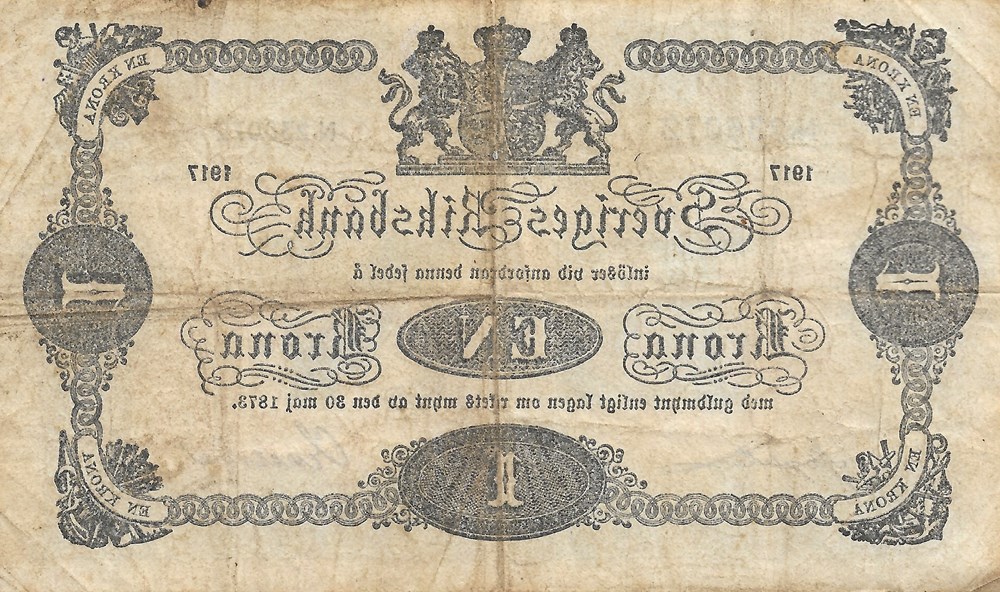 EN KRONA EN KRONA
1917 1917
Sveriges Riksbank
inlöser vid anfordran denna sedel à
1 Krona EN Krona 1
med guldmynt enligt lagen om rikets mynt av den 30 maj 1873.
EN KRONA 1 EN KRONA